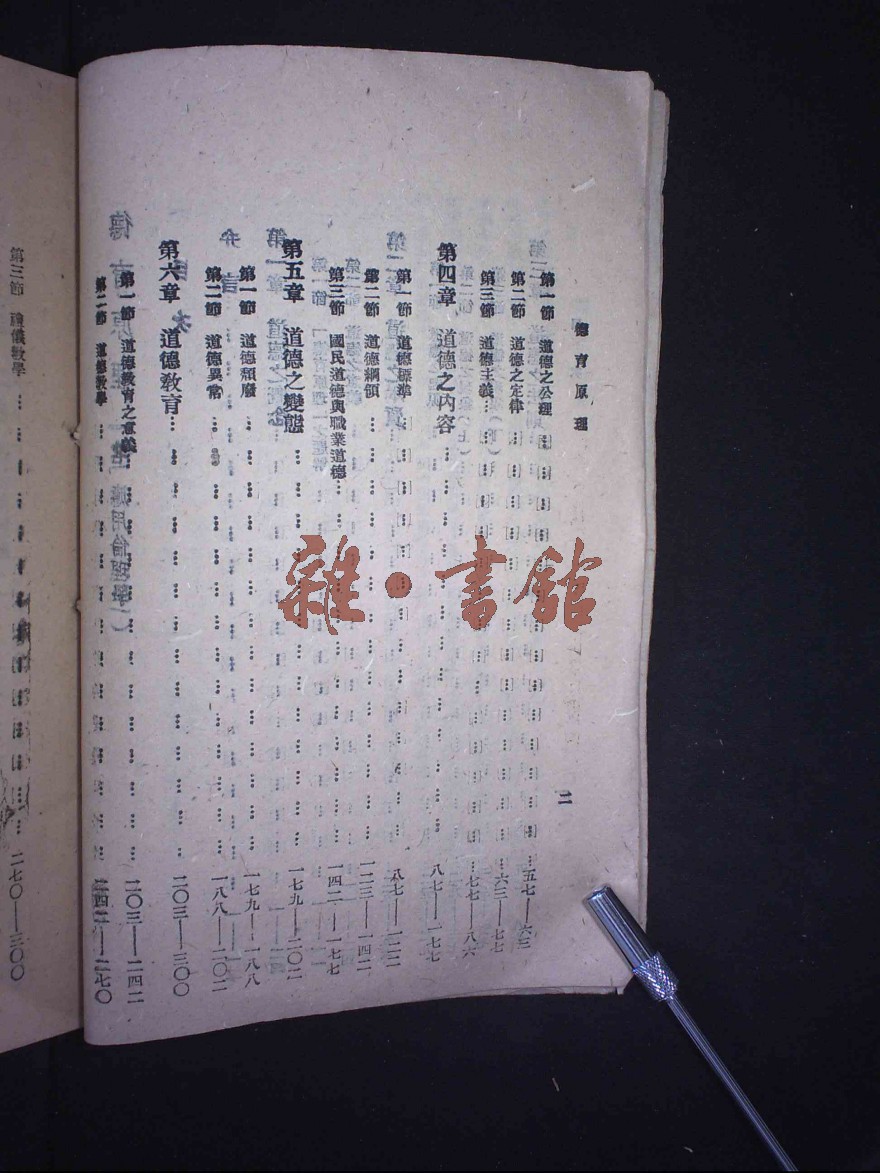 德育原理
二
第一節 道德之公理……五七——六三
第二節 道德之定律……六三——七七
第三節 道德主義……七七——八六
第四章 道德之內容……八七——一七七
第一節 道德標準……八七——一二二
第二節 道德綱領……一二三——一四二
第三節 國民道德與職業道德……一四二——一七七
第五章 道德之變態……一七九——二〇二
第一節 道德頹廢……一七九——一八八
第二節 道德異常……一八八——二〇二
第六章 道德教育……二〇三——三〇〇
第一節 道德教育之意義……二〇三——二四二
第二節 道德教學……二四二——二七〇
第三節 禮儀教學……二七〇——三〇〇
雜·書館